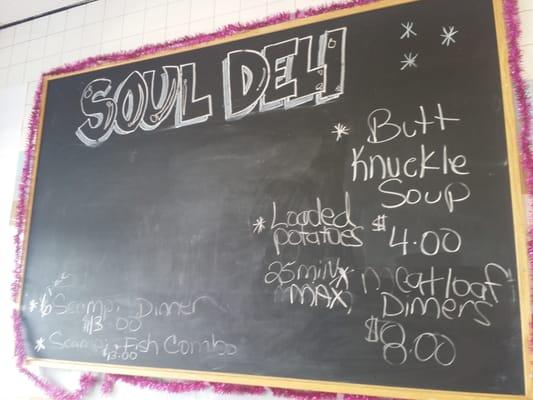 SOUL DELI
Butt
Knuckle
Soup
Loaded
potatoes
$4.00
25 min
MAX,
Meatloaf
Dinners
$8.00
* 6 Scampi Dinner
$13.00
* Scampi Fish Combo
13.00